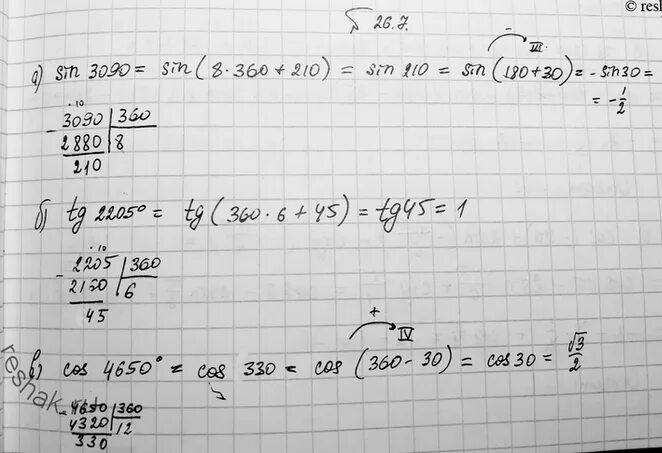 © resh
№ 26.7.
- III
а) sin 3090 = sin(8·360+210) = sin 210 = sin(180+30) = -sin30 =
= -1/2
·10
- 3090 | 360
2880 | 8
210
б) tg 2205° = tg(360·6+45) = tg45 = 1
·10
- 2205 | 360
2160 | 6
45
+ IV
в) cos 4650° = cos 330 = cos(360-30) = cos30 = √3/2
- 4650 | 360
4320 | 12
330
reshak